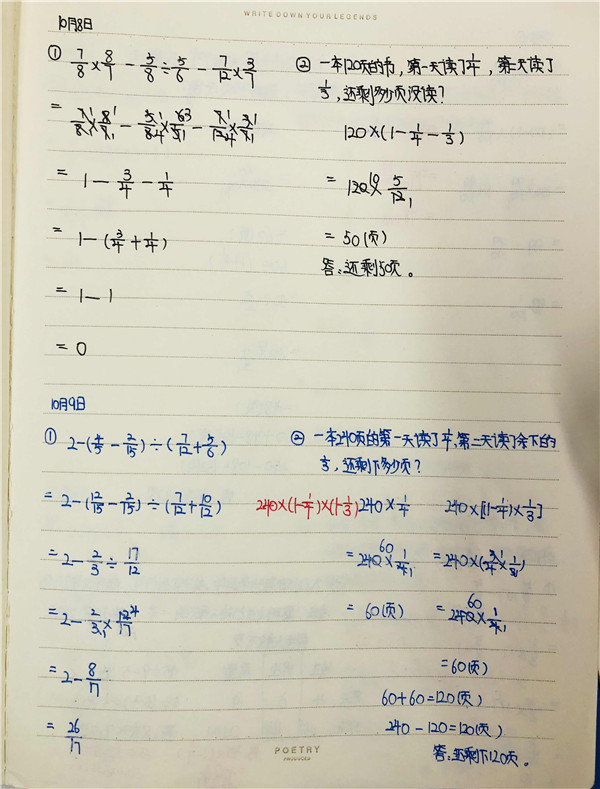 WRITE DOWN YOUR LEGENDS
10月8日
① 7/8×8/7－5/8÷5/6－7/12×3/7
= 7/8×8/7－5/8×6/5－7/12×3/7
= 1－3/4－1/4
= 1－(3/4+1/4)
= 1－1
= 0
② 一本120页的书，第一天读了1/4，第二天读了
1/3，还剩多少页没读？
120×(1－1/4－1/3)
= 120×5/12
= 50(页)
答：还剩50页。
10月9日
① 2－(4/5－2/15)÷(7/12+5/6)
= 2－(12/15－2/15)÷(7/12+10/12)
= 2－2/3÷17/12
= 2－2/3×12/17
= 2－8/17
= 26/17
② 一本240页的第一天读了1/4，第二天读了余下的
1/3，还剩下多少页？
240×(1－1/4)×(1－1/3)
240×1/4
= 240×1/4
= 60(页)
240×[(1－1/4)×1/3]
= 240×(3/4×1/3)
= 240×1/4
= 60(页)
60+60=120(页)
240－120=120(页)
答：还剩下120页。
POETRY